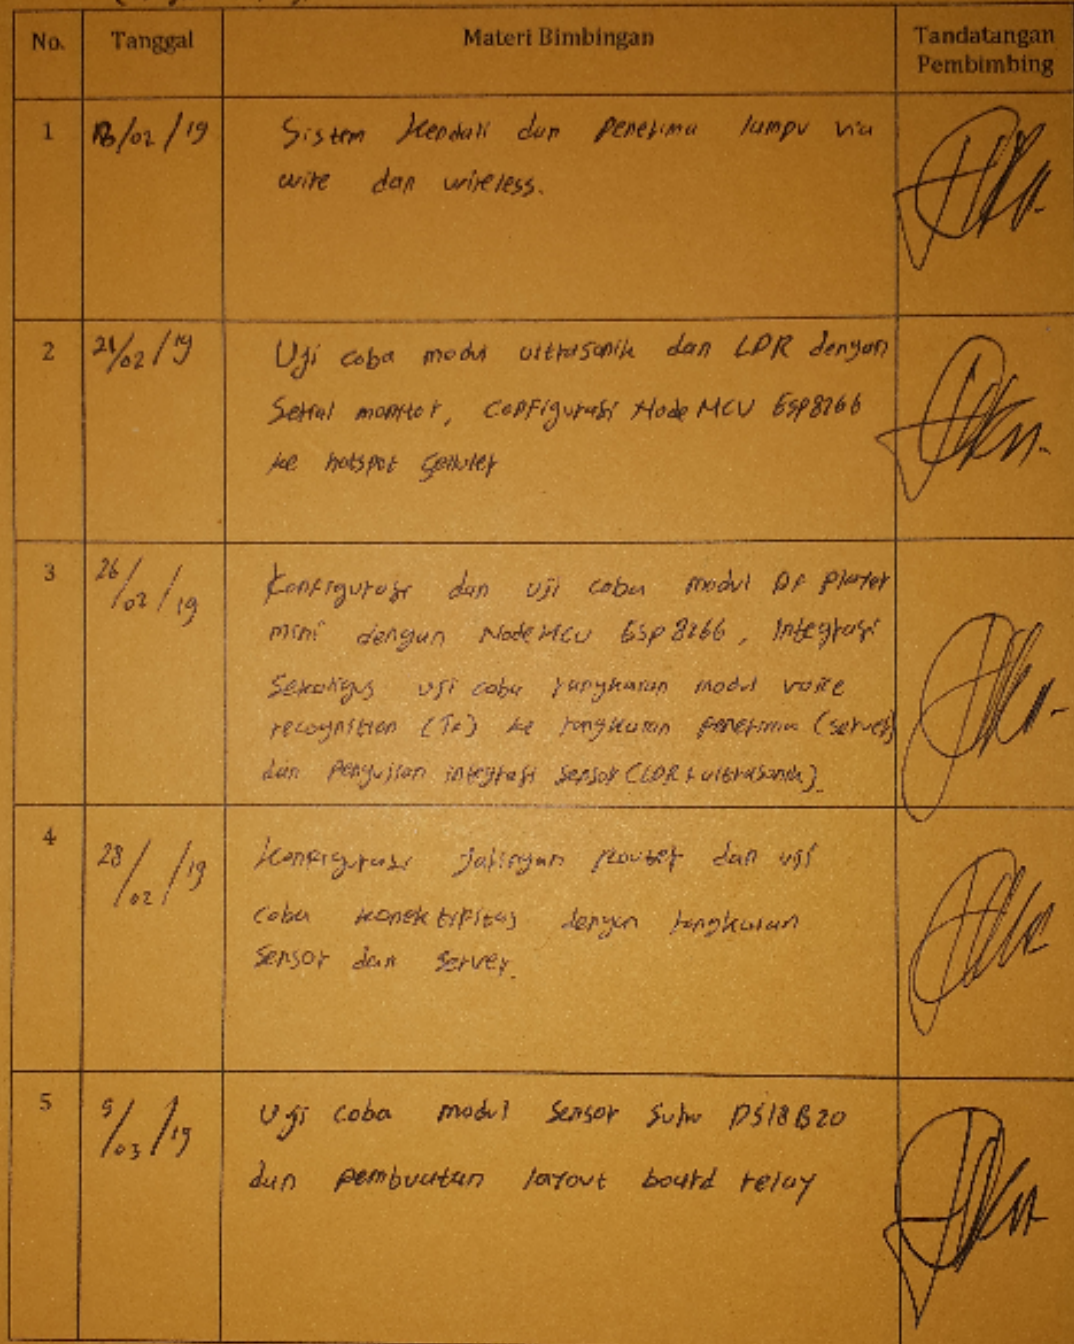 No. Tanggal Materi Bimbingan Tandatangan
Pembimbing
1 /02/19 Sistem Kendali dan Penerima lampu via
wire dan wireless.
2 21/02/19 Uji coba modul ultrasonik dan LDR dengan
Serial monitor, Configurasi Node MCU Esp8266
ke hotspot Seluler
3 26/02/19 Konfigurasi dan uji coba modul DF Player
mini dengan NodeMCU Esp8266, Integrasi
Sekaligus uji coba rangkaian modul voice
recognition (Tx) ke rangkaian Penerima (server)
dan Pengujian integrasi Sensor (LDR + ultrasonik).
4 28/02/19 Konfigurasi Jaringan Router dan uji
coba konektifitas dengan rangkaian
Sensor dan Server.
5 /03/19 Uji coba modul Sensor Suhu DS18B20
dan pembuatan layout board relay